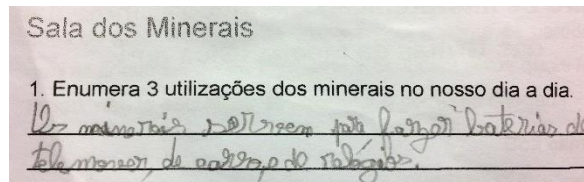 Sala dos Minerais
1. Enumera 3 utilizações dos minerais no nosso dia a dia.
Os minerais servem para fazer baterias de
telemoveis, de carros e de relógios.